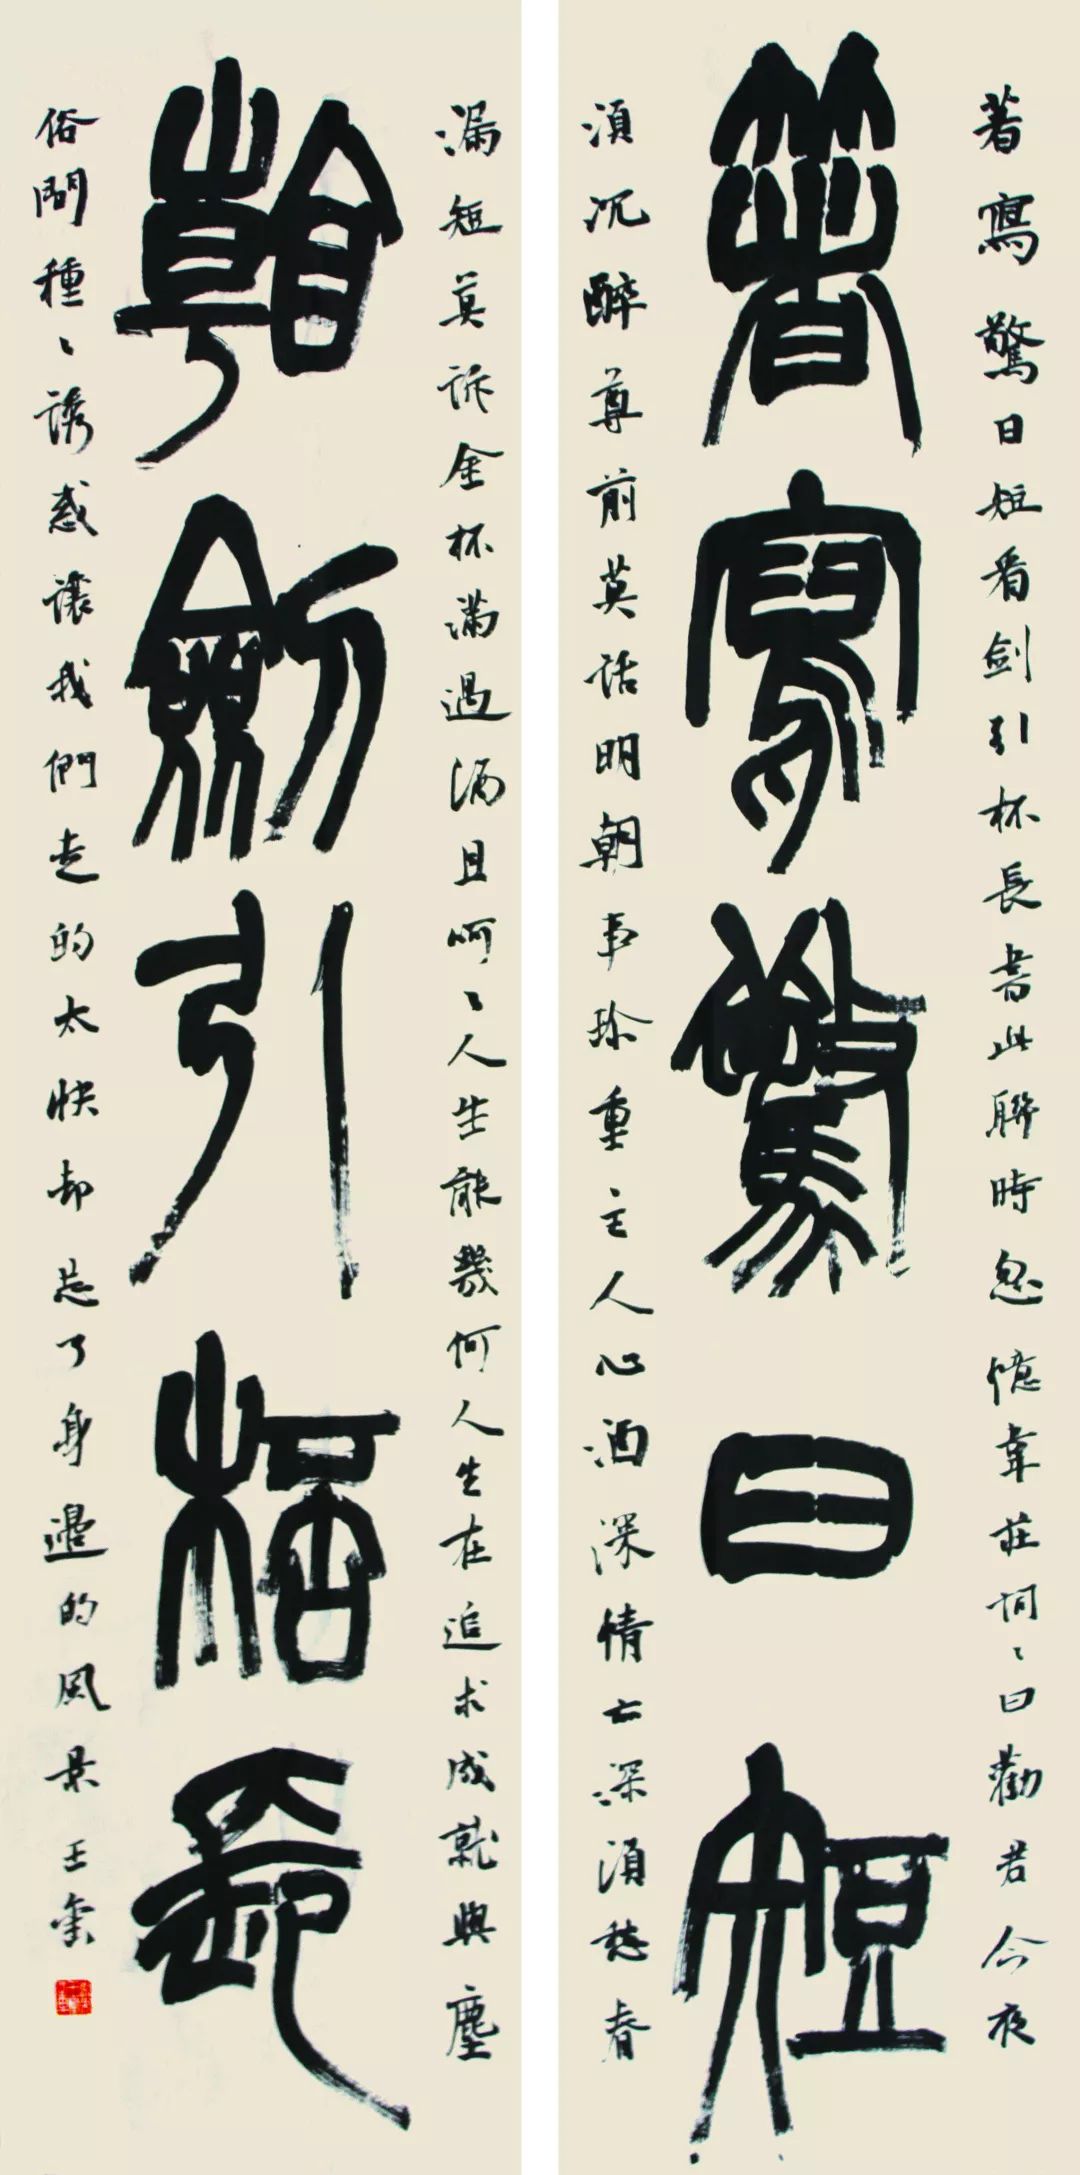 著寫驚日短看剑引杯長書此聯時忽憶韋莊詞〻曰勸君今夜
箸寫驚日短
須沉醉尊前莫話明朝事珍重主人心酒深情亦深須愁春
漏短莫訴金杯滿遇酒且呵〻人生能幾何人生在追求成就與塵
看劍引桮長
俗間種〻誘惑讓我們走的太快却忘了身邊的風景 王